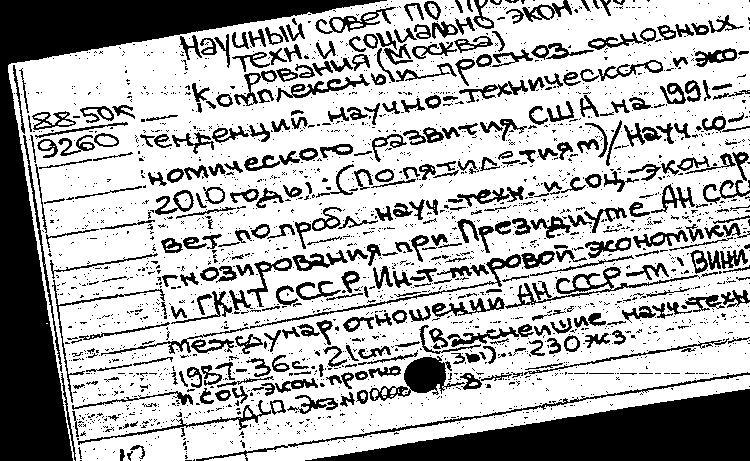 Научный совет по
техн. и социально-экон.
рования (Москва)
Комплексный прогноз основных
88-50К
тенденций научно-технического и эко-
9260
номического развития США на 1991-
2010 годы: (По пятилетиям) / Науч. со-
вет по пробл. науч.-техн. и соц.-экон. пр
гнозирования при Президиуме АН ССС
и ГКНТ СССР, Ин-т мировой экономики
междунар. отношений АН СССР.-М.: ВИНИ
1987-36с.; 21см.-(Важнейшие науч.-техн
и соц.-экон. прогно зы). 230 жз.
ДСП. Экз. N 0000 В.
10